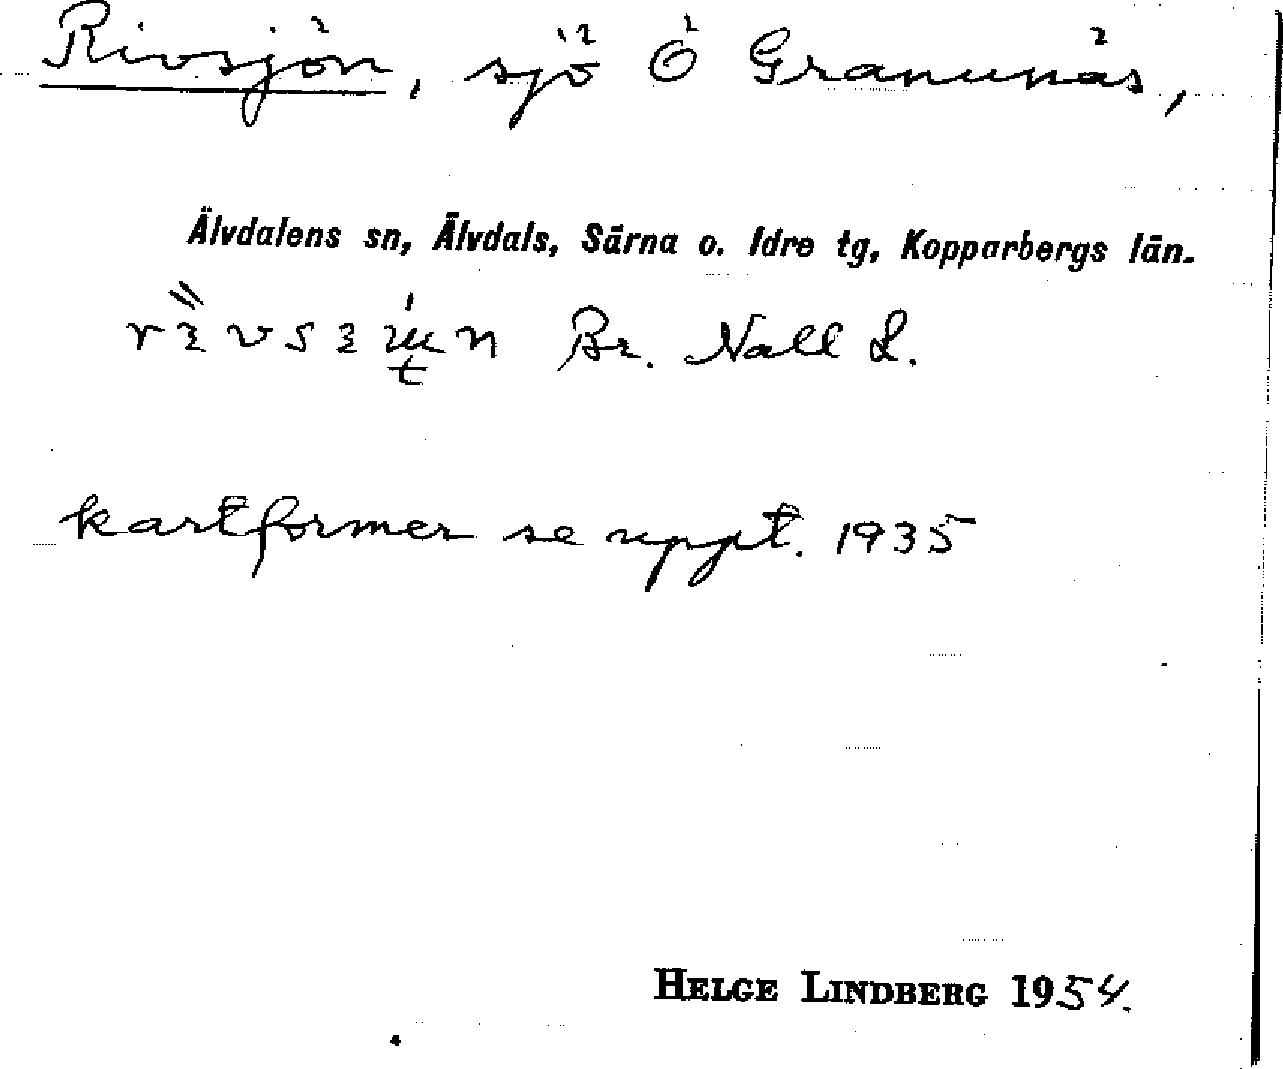 Rivsjön, sjö Ö Granunäs,
Älvdalens sn, Älvdals, Särna o. Idre tg, Kopparbergs län.
Br. Nall L.
kartformer se uppt. 1935
HELGE LINDBERG 1954.